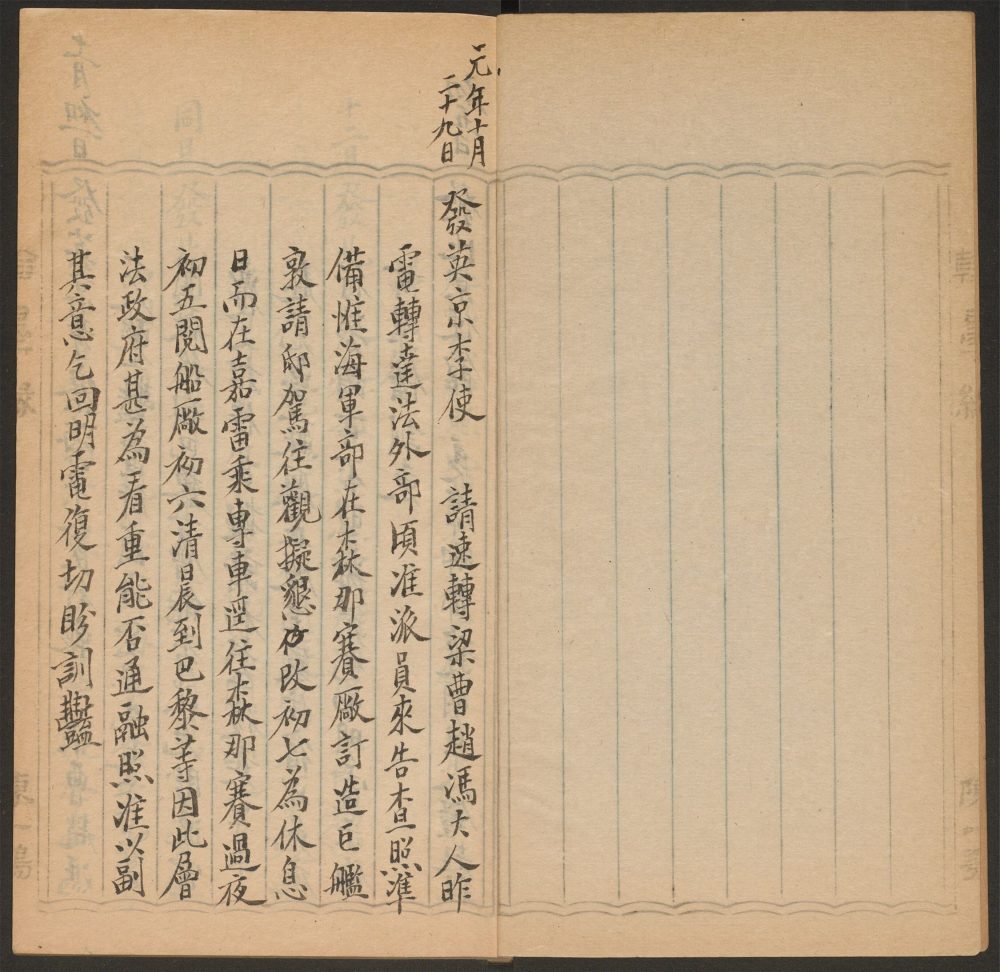 元年十月
二十九日
發英京李使　請速轉梁曹趙馮大人昨
電轉達法外部頃准派員來告查照準
備惟海軍部在森那賽廠訂造巨艦
敦請邸駕往觀擬懇改初七為休息
日而在嘉雷乘專車逕往森那賽過夜
初五閱船廠初六清晨到巴黎等因此層
法政府甚為看重能否通融照准以副
其意乞回明電復切盼訓